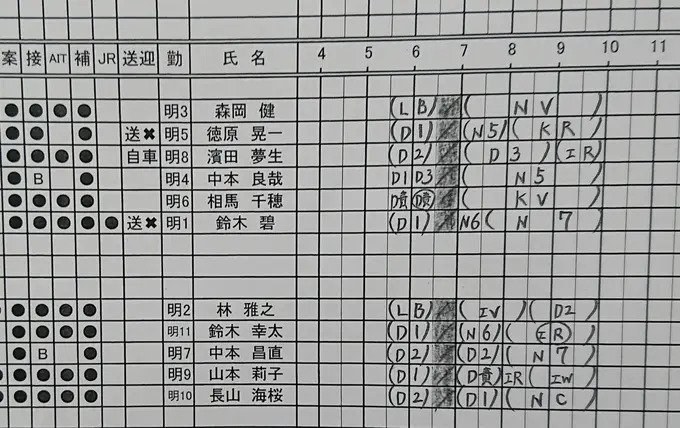 案 接 AIT 補 JR 送迎 勤 氏 名 4 5 6 7 8 9 10 11
● ● ● ● 明3 森岡 健 (L B) ( N V )
● ● ● 送✖ 明5 徳原 晃一 (D 1) (N 5) ( K R )
● ● ● ● 自車 明8 濱田 夢生 (D 2) ( D 3 ) (I R)
● B ● 明4 中本 良哉 D1 D3 ( N 5 )
● ● ● ● 明6 相馬 千穂 D貴 D貴 ( K V )
● ● ● ● ● 送✖ 明1 鈴木 碧 (D 1) N6 ( N 7 )
● ● ● ● 明2 林 雅之 (L B) ( I V ) ( D2 )
● ● ● ● 明11 鈴木 幸太 (D 1) (N 6) ( I R )
● B ● 明7 中本 昌直 (D 2) (D 2) ( N 7 )
● ● ● ● 明9 山本 莉子 (D 1) (D貴) IR ( IW )
● ● ● ● 明10 長山 海桜 (D 2) (D 1) ( N C )